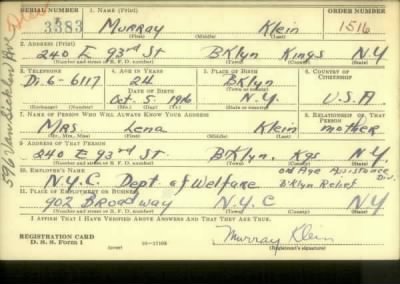 SERIAL NUMBER 1. NAME (Print) ORDER NUMBER
3383 Murray Klein 1516
(First) (Middle) (Last)
2. ADDRESS (Print)
240 E 93rd St BKlyn Kings N.Y
(Number and street or R. F. D. number) (Town) (County) (State)
3. TELEPHONE 4. AGE IN YEARS 5. PLACE OF BIRTH 6. COUNTRY OF CITIZENSHIP
Di-6-6117 24 BKlyn
DATE OF BIRTH (Town or county)
Oct. 5, 1916 N.Y. U.S.A.
(Exchange) (Number) (Mo.) (Day) (Yr.) (State or country)
7. NAME OF PERSON WHO WILL ALWAYS KNOW YOUR ADDRESS 8. RELATIONSHIP OF THAT PERSON
Mrs Lena Klein mother
(Mr., Mrs., Miss) (First) (Middle) (Last)
9. ADDRESS OF THAT PERSON
240 E 93rd St BKlyn. Kgs N.Y.
(Number and street or R. F. D. number) (Town) (County) (State)
10. EMPLOYER'S NAME old Age Assistance Div.
N.Y.C Dept of Welfare BKlyn Relief
11. PLACE OF EMPLOYMENT OR BUSINESS
902 Broadway N.Y.C N.Y.
(Number and street or R. F. D. number) (Town) (County) (State)
I AFFIRM THAT I HAVE VERIFIED ABOVE ANSWERS AND THAT THEY ARE TRUE.
REGISTRATION CARD
D. S. S. Form 1 (over) 16-17105 Murray Klein
(Registrant's signature)